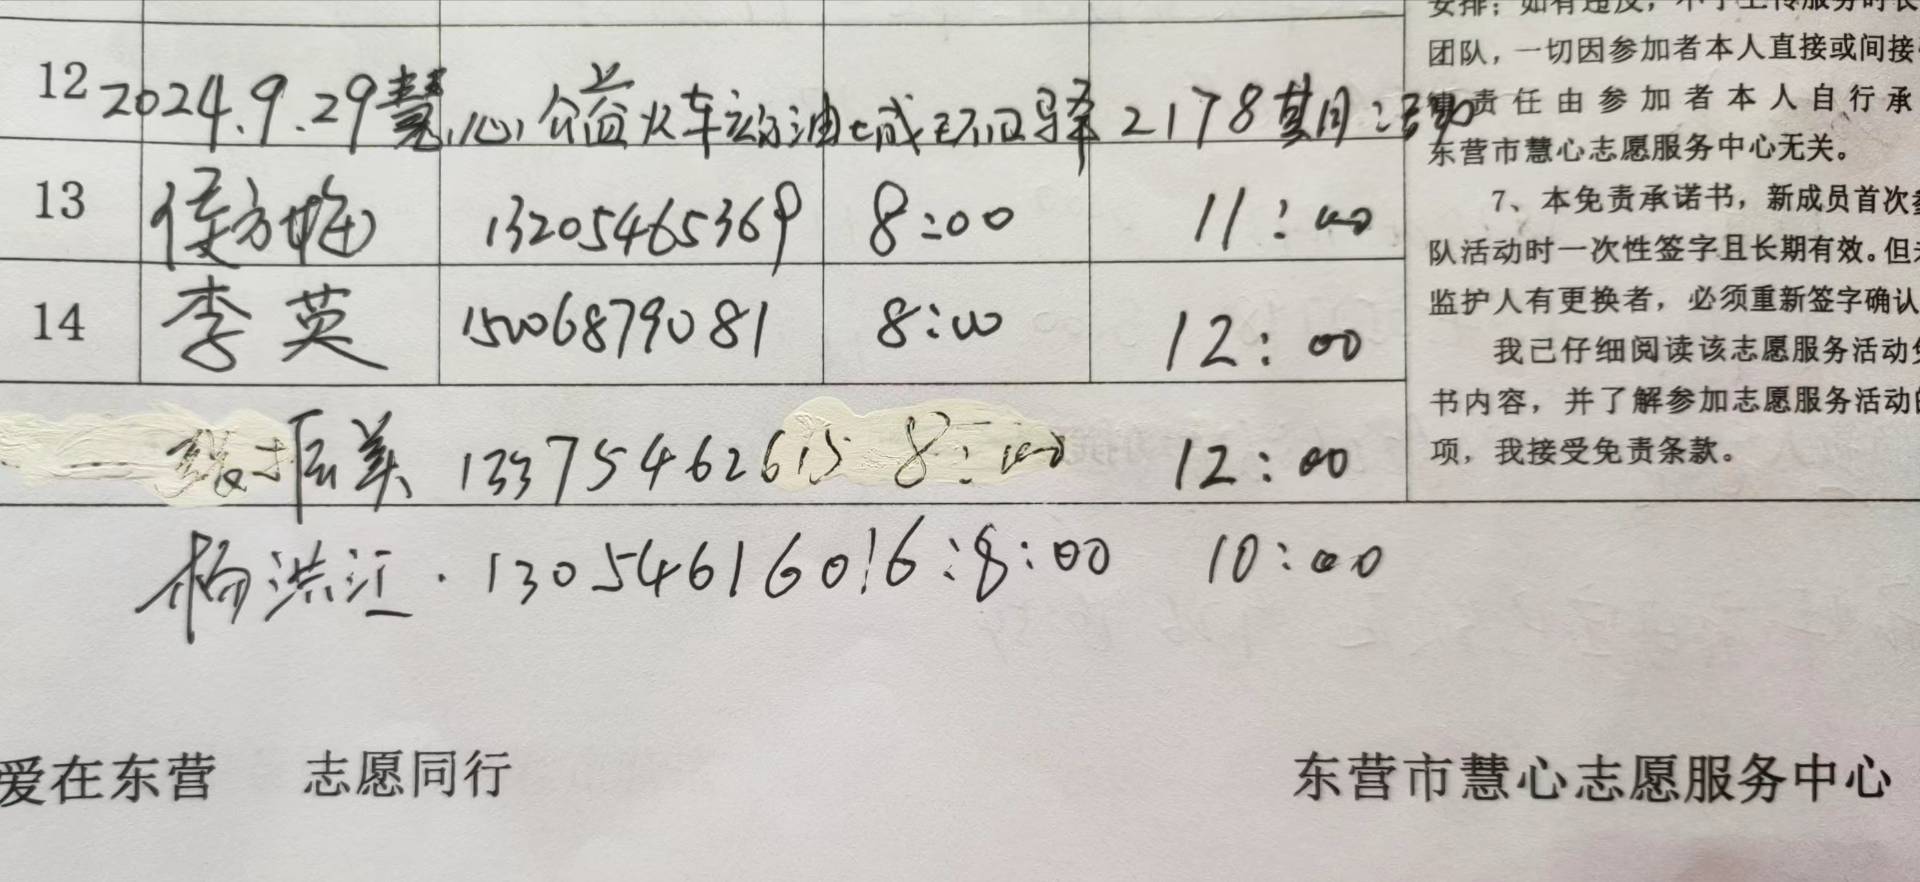 12 2024.9.29慧心公益火车站油城环卫驿2178期活动
13 侯方梅 13205465369 8:00 11:00
14 李英 15006879081 8:00 12:00
振美 13375462615 8:00 12:00
杨洪江. 13054616016:8:00 10:00
团队，一切因参加者本人直接或间接
责任由参加者本人自行承
东营市慧心志愿服务中心无关。
7、本免责承诺书，新成员首次
队活动时一次性签字且长期有效。但
监护人有更换者，必须重新签字确认
我已仔细阅读该志愿服务活动
书内容，并了解参加志愿服务活动
项，我接受免责条款。
爱在东营 志愿同行
东营市慧心志愿服务中心